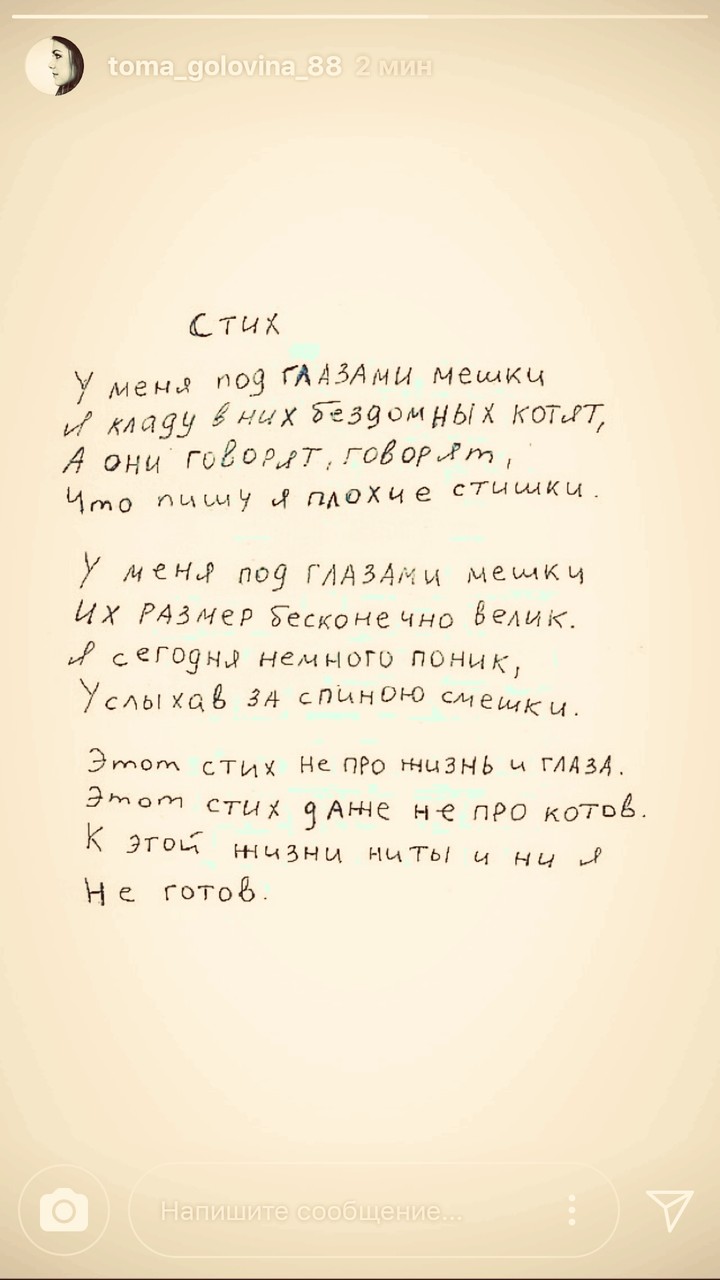 toma_golovina_88 2 мин
Стих
У меня под глазами мешки
Я кладу в них бездомных котят,
А они говорят, говорят,
Что пишу я плохие стишки.
У меня под глазами мешки
Их размер бесконечно велик.
Я сегодня немного поник,
Услыхав за спиною смешки.
Этот стих не про жизнь и глаза.
Этот стих даже не про котов.
К этой жизни ни ты и ни я
Не готов.
Напишите сообщение...